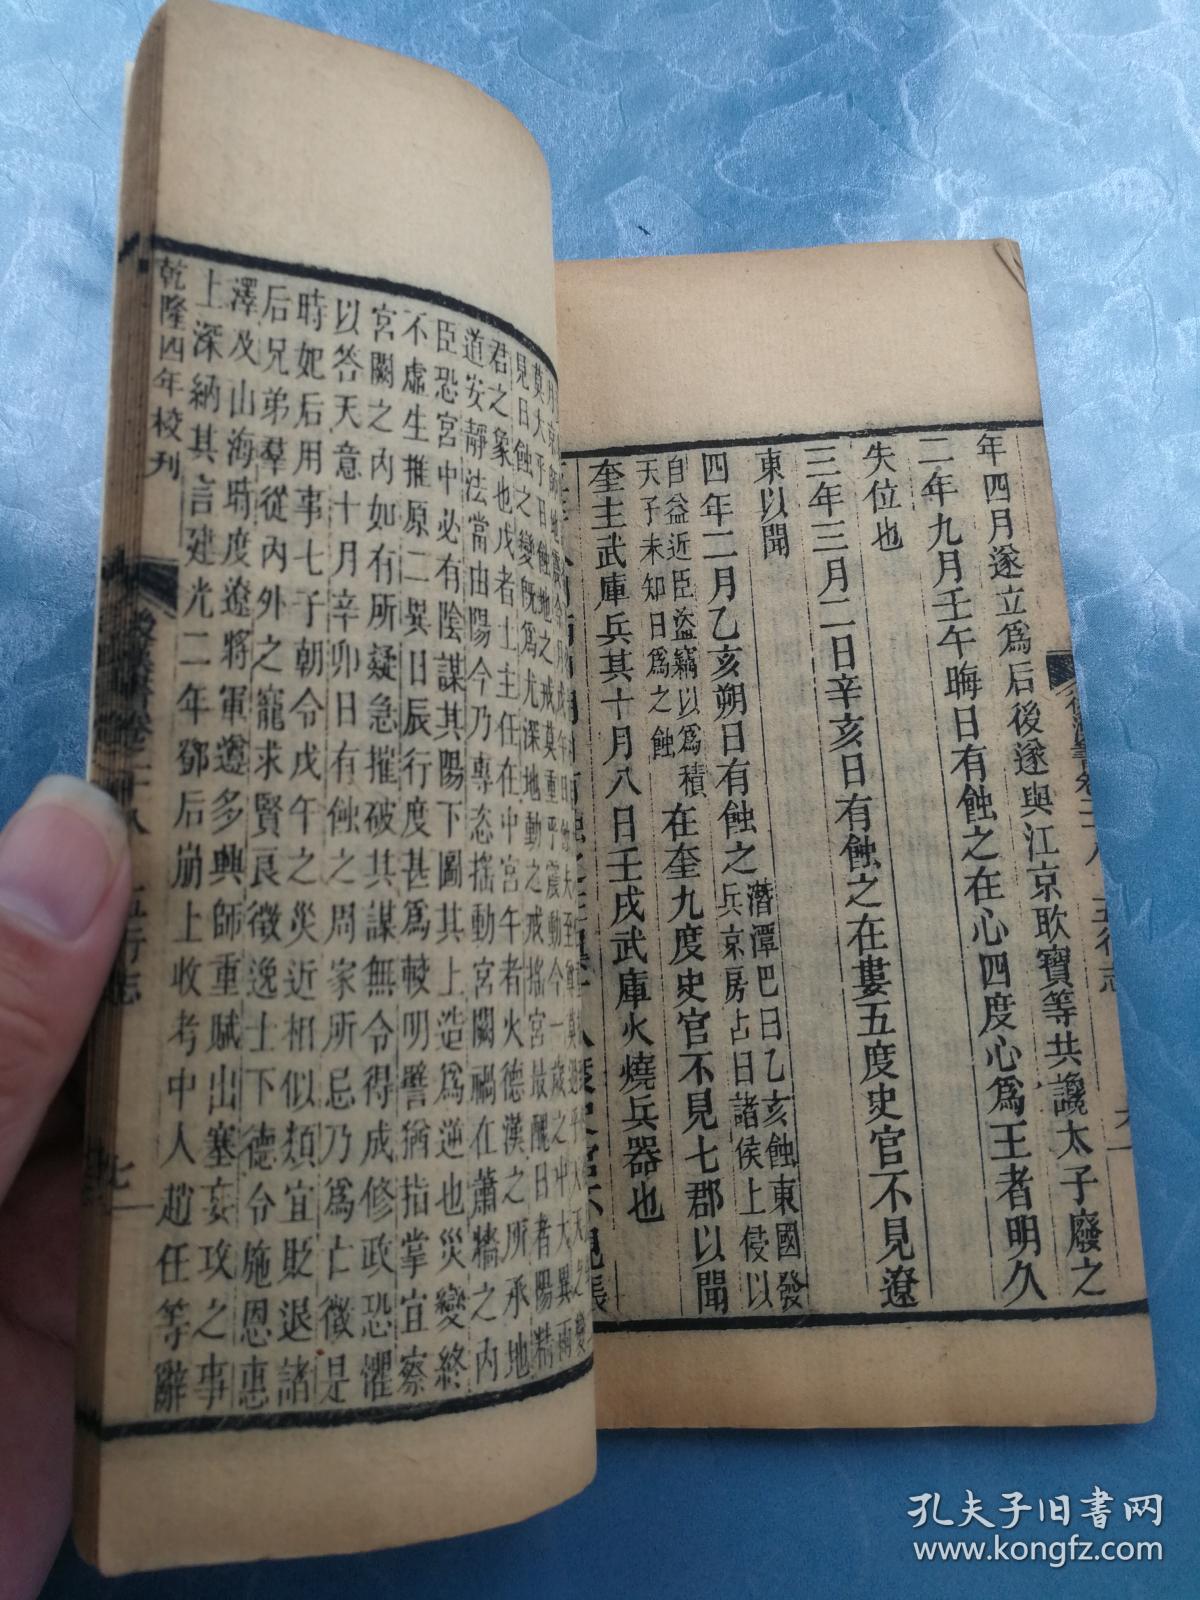 年四月遂立爲后後遂與江京耿寶等共讒太子廢之
二年九月壬午晦日有蝕之在心四度心爲王者明久
失位也
三年三月二日辛亥日有蝕之在婁五度史官不見遼
東以聞
四年二月乙亥朔日有蝕之
潛潭巴曰乙亥蝕東國發
兵京房占曰諸侯上侵以
自益近臣盜竊以爲積
天子未知日爲之蝕
在奎九度史官不見七郡以聞
奎主武庫兵其十月八日壬戌武庫火燒兵器也
後漢書卷二十八 五行志
莫大乎日蝕地之戒莫重乎震動今一歲之中大異兩
見日蝕之變旣爲尤深地動之戒搖宮最醜日者陽精
君之象也戊者土主任在中宮午者火德漢之所承地
道安靜法當由陽今乃專恣搖動宮闕禍在蕭牆之內
臣恐宮中必有陰謀其陽下圖其上造爲逆也災變終
不虛生推原二異日辰行度甚爲較明譬猶指掌宜察
宮闕之內如有所疑急摧破其謀無令得成修政恐懼
以答天意十月辛卯日有蝕之周家所忌乃爲亡徵是
時妃后用事七子朝令戊午之災近相似類宜貶退諸
后兄弟羣從內外之寵求賢良徵逸士下德令施恩惠
澤及山海時度遼將軍遵多興師重賦出塞妄攻之事
上深納其言建光二年鄧后崩上收考中人趙任等辭
乾隆四年校刊
後漢書卷二十八 五行志 七
孔夫子旧书网
www.kongfz.com